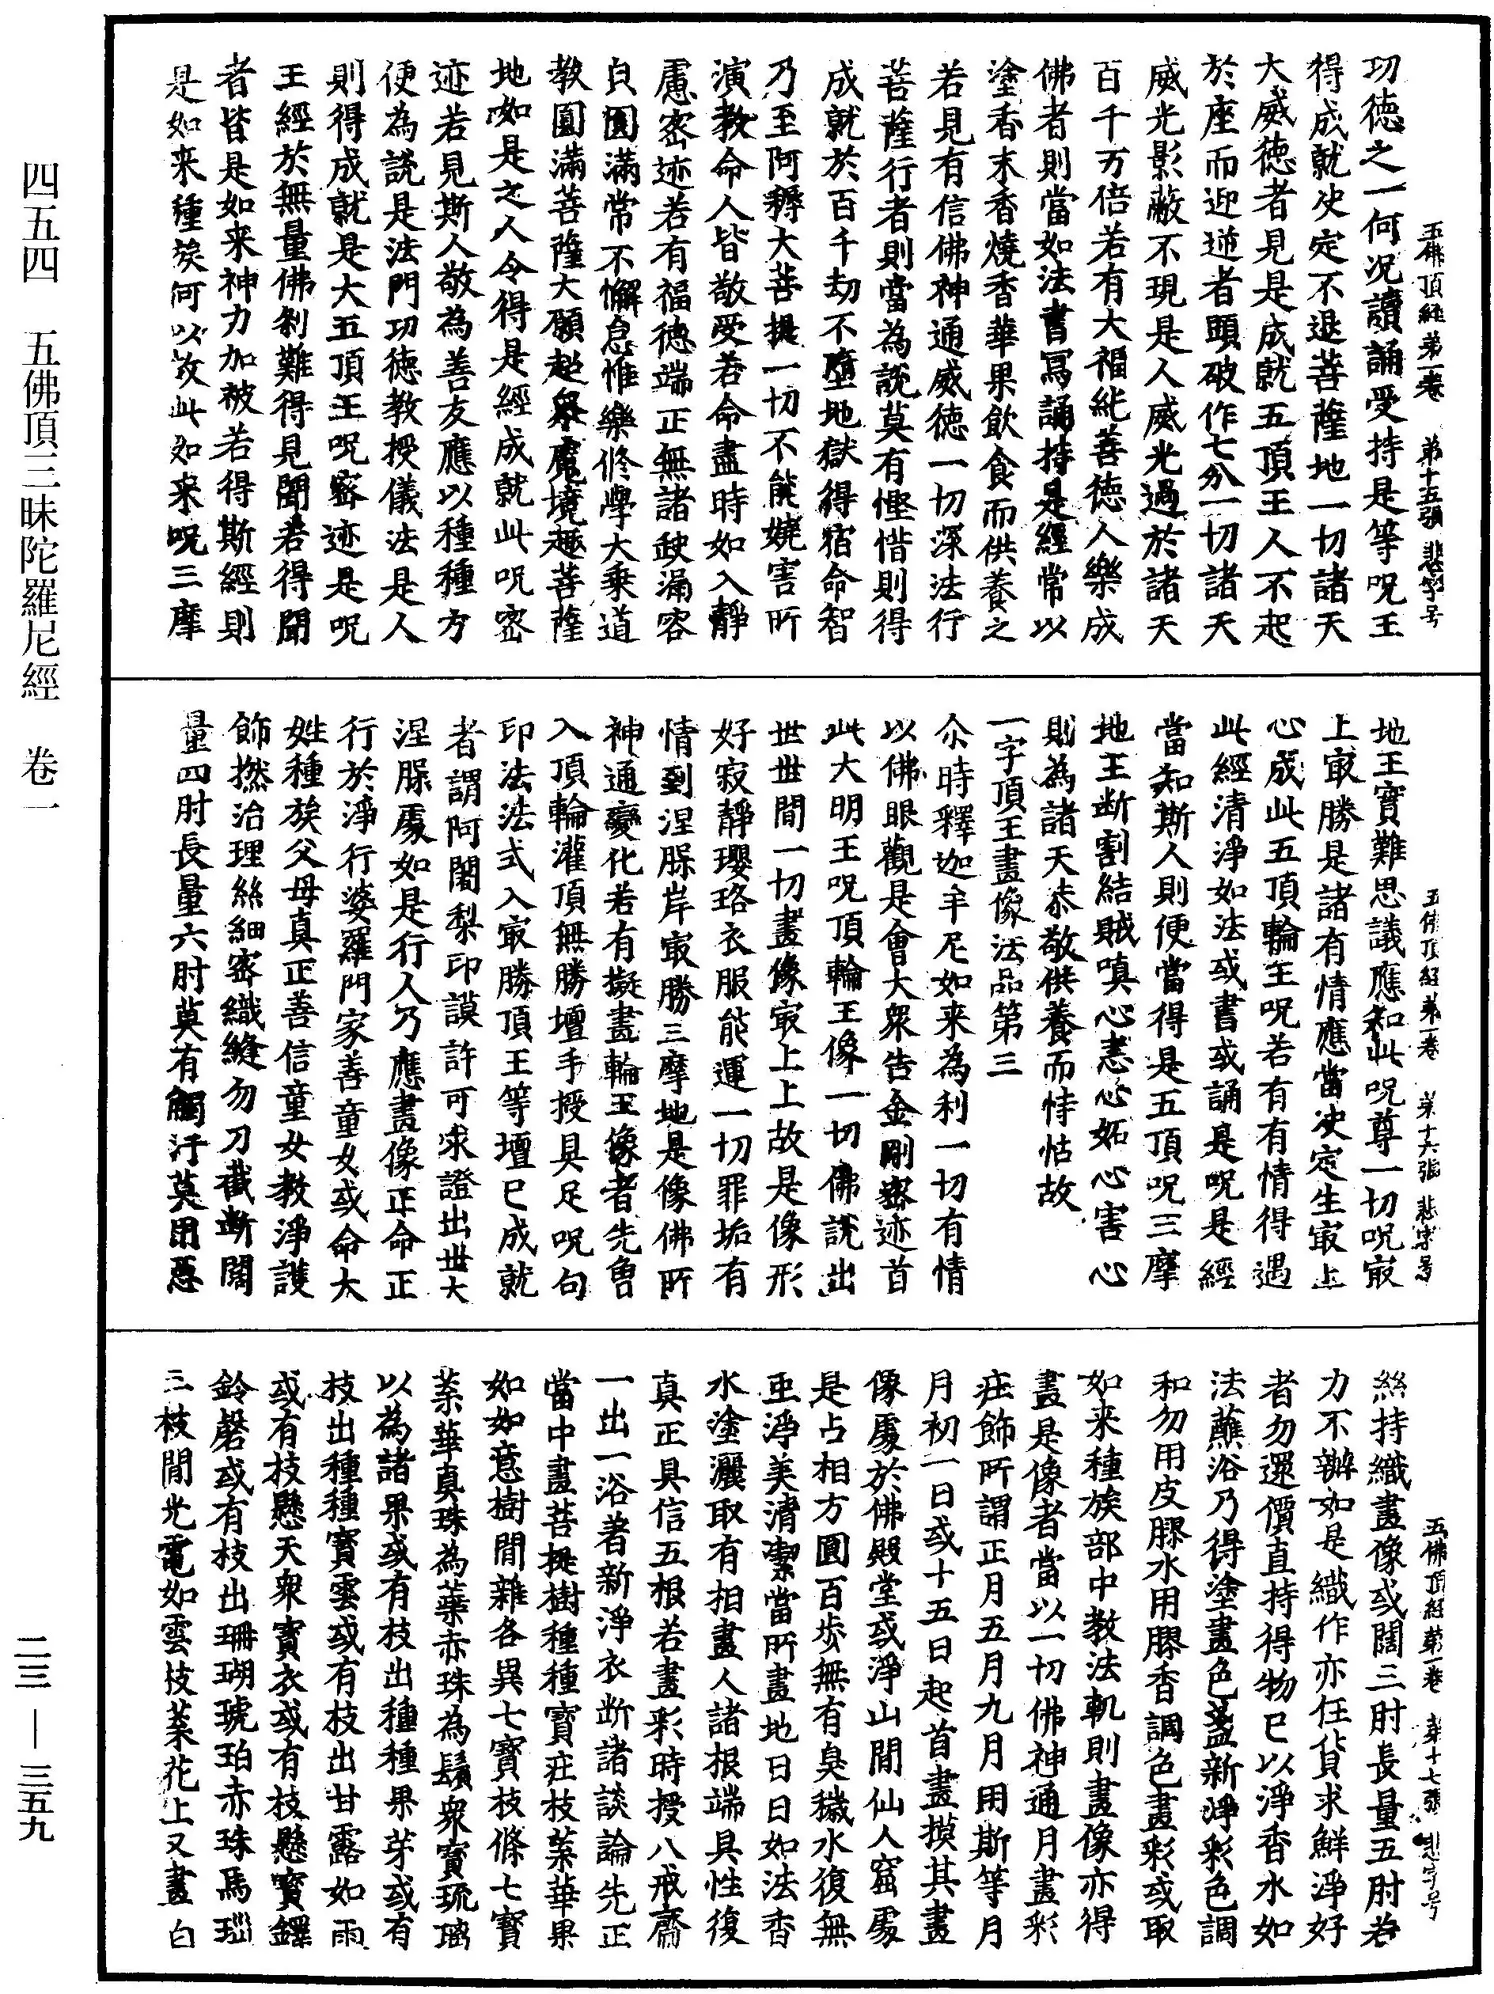 五佛頂經第一卷　第十五張　悲字号
功德之一何況讀誦受持是等呪王
得成就決定不退菩薩地一切諸天
大威德者見是成就五頂王人不起
於座而迎逆者頭破作七分一切諸天
威光影蔽不現是人威光過於諸天
百千万倍若有大福純善德人樂成
佛者則當如法書寫誦持是經常以
塗香末香燒香華果飲食而供養之
若見有信佛神通威德一切深法行
菩薩行者則當為說莫有慳惜則得
成就於百千劫不墮地獄得宿命智
乃至阿耨大菩提一切不能嬈害所
演教命人皆敬受若命盡時如入靜
慮密迹若有福德端正無諸缺漏容
皃圓滿常不懈息惟樂修學大乘道
教圓滿菩薩大願起衆魔境趣菩薩
地如是之人令得是經成就此呪密
迹若見斯人敬為善友應以種種方
便為說是法門功德教授儀法是人
則得成就是大五頂王呪密迹是呪
王經於無量佛剎難得見聞若得聞
者皆是如来神力加被若得斯經則
是如来種族何以故此如来呪三摩
五佛頂經第一卷　第十六張　悲字号
地王寶難思議應知此呪尊一切呪冣
上冣勝是諸有情應當決定生冣上
心成此五頂輪王呪若有有情得遇
此經清淨如法或書或誦是呪是經
當知斯人則便當得是五頂呪三摩
地王斷割結賊嗔心恚心妬心害心
則為諸天恭敬供養而恃怙故
一字頂王畫像法品第三
尒時釋迦牟尼如来為利一切有情
以佛眼觀是會大衆告金剛密迹首
此大明王呪頂輪王像一切佛說出
世世間一切畫像冣上上故是像形
好寂靜瓔珞衣服能運一切罪垢有
情到涅槃岸冣勝三摩地是像佛所
神通變化若有擬畫輪王像者先曾
入頂輪灌頂無勝壇手授具足呪句
印法法式入冣勝頂王等壇已成就
者謂阿闍梨印謨許可求證出世大
涅槃處如是行人乃應畫像正命正
行於淨行婆羅門家善童女或命大
姓種族父母真正善信童女教淨護
飾撚治理絲細密織縫勿刀截斷闊
量四肘長量六肘莫有觸汙莫用惡
五佛頂經第一卷　第十七張　悲字号
絲持織畫像或闊三肘長量五肘若
力不辦如是織作亦任貨求鮮淨好
者勿還價直持得物已以淨香水如
法蘸浴乃得塗畫色盞新淨彩色調
和勿用皮膠水用膠香調色畫彩或取
如来種族部中教法軌則畫像亦得
畫是像者當以一切佛神通月畫彩
莊飾所謂正月五月九月用斯等月
月初一日或十五日起首畫摸其畫
像處於佛殿堂或淨山間仙人窟處
是占相方圓百步無有臭穢水復無
蟲淨美清潔當所畫地日日如法香
水塗灑取有相畫人諸根端具性復
真正具信五根若畫彩時授八戒齋
一出一浴著新淨衣斷諸談論先正
當中畫菩提樹種種寶莊枝葉華果
如如意樹間雜各異七寶枝條七寶
葉華真珠為蘂赤珠為鬚衆寶琉璃
以為諸果或有枝出種種果芽或有
枝出種種寶雲或有枝出甘露如雨
或有枝懸天衆寶衣或有枝懸寶鐸
鈴磬或有枝出珊瑚琥珀赤珠馬瑙
三枝間光電如雲枝葉花上又畫白
四五四　五佛頂三昧陀羅尼經　卷一
二三—三五九